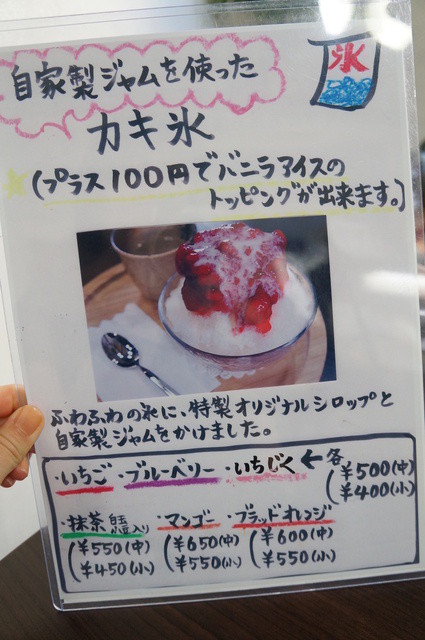 氷
自家製ジャムを使った
カキ氷
(プラス100円でバニラアイスの
トッピングが出来ます。)
ふわふわの氷に、特製オリジナルシロップと
自家製ジャムをかけました。
・いちご ・ブルーベリー ・いちじく ← 各
(¥500(中)
¥400(小)
・抹茶 入り ・マンゴー ・ブラッドオレンジ
(¥550(中) (¥650(中) (¥600(中)
¥450(小) ¥550(小) ¥550(小)